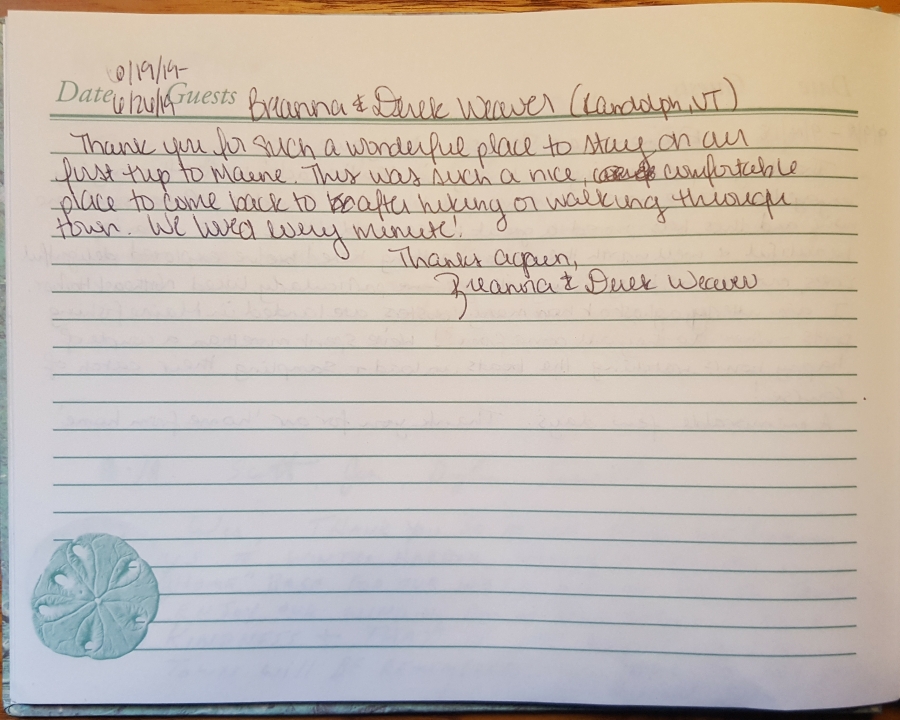 6/19/19-
Date 6/26/19 Guests Breanna & Derek Weaver (Randolph, VT)
Thank you for such a wonderful place to stay on our
first trip to Maine. This was such a nice, comfortable
place to come back to after hiking or walking through
town. We loved every minute!
Thanks again,
Breanna & Derek Weaver